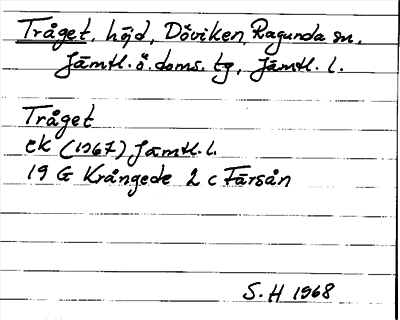 Tråget, höjd, Döviken, Ragunda sn.
Jämtl. ö. doms. tg, Jämtl. l.
Tråget
ek (1967) Jämtl. l.
19 G Krångede 2 c Färsån
S. H 1968